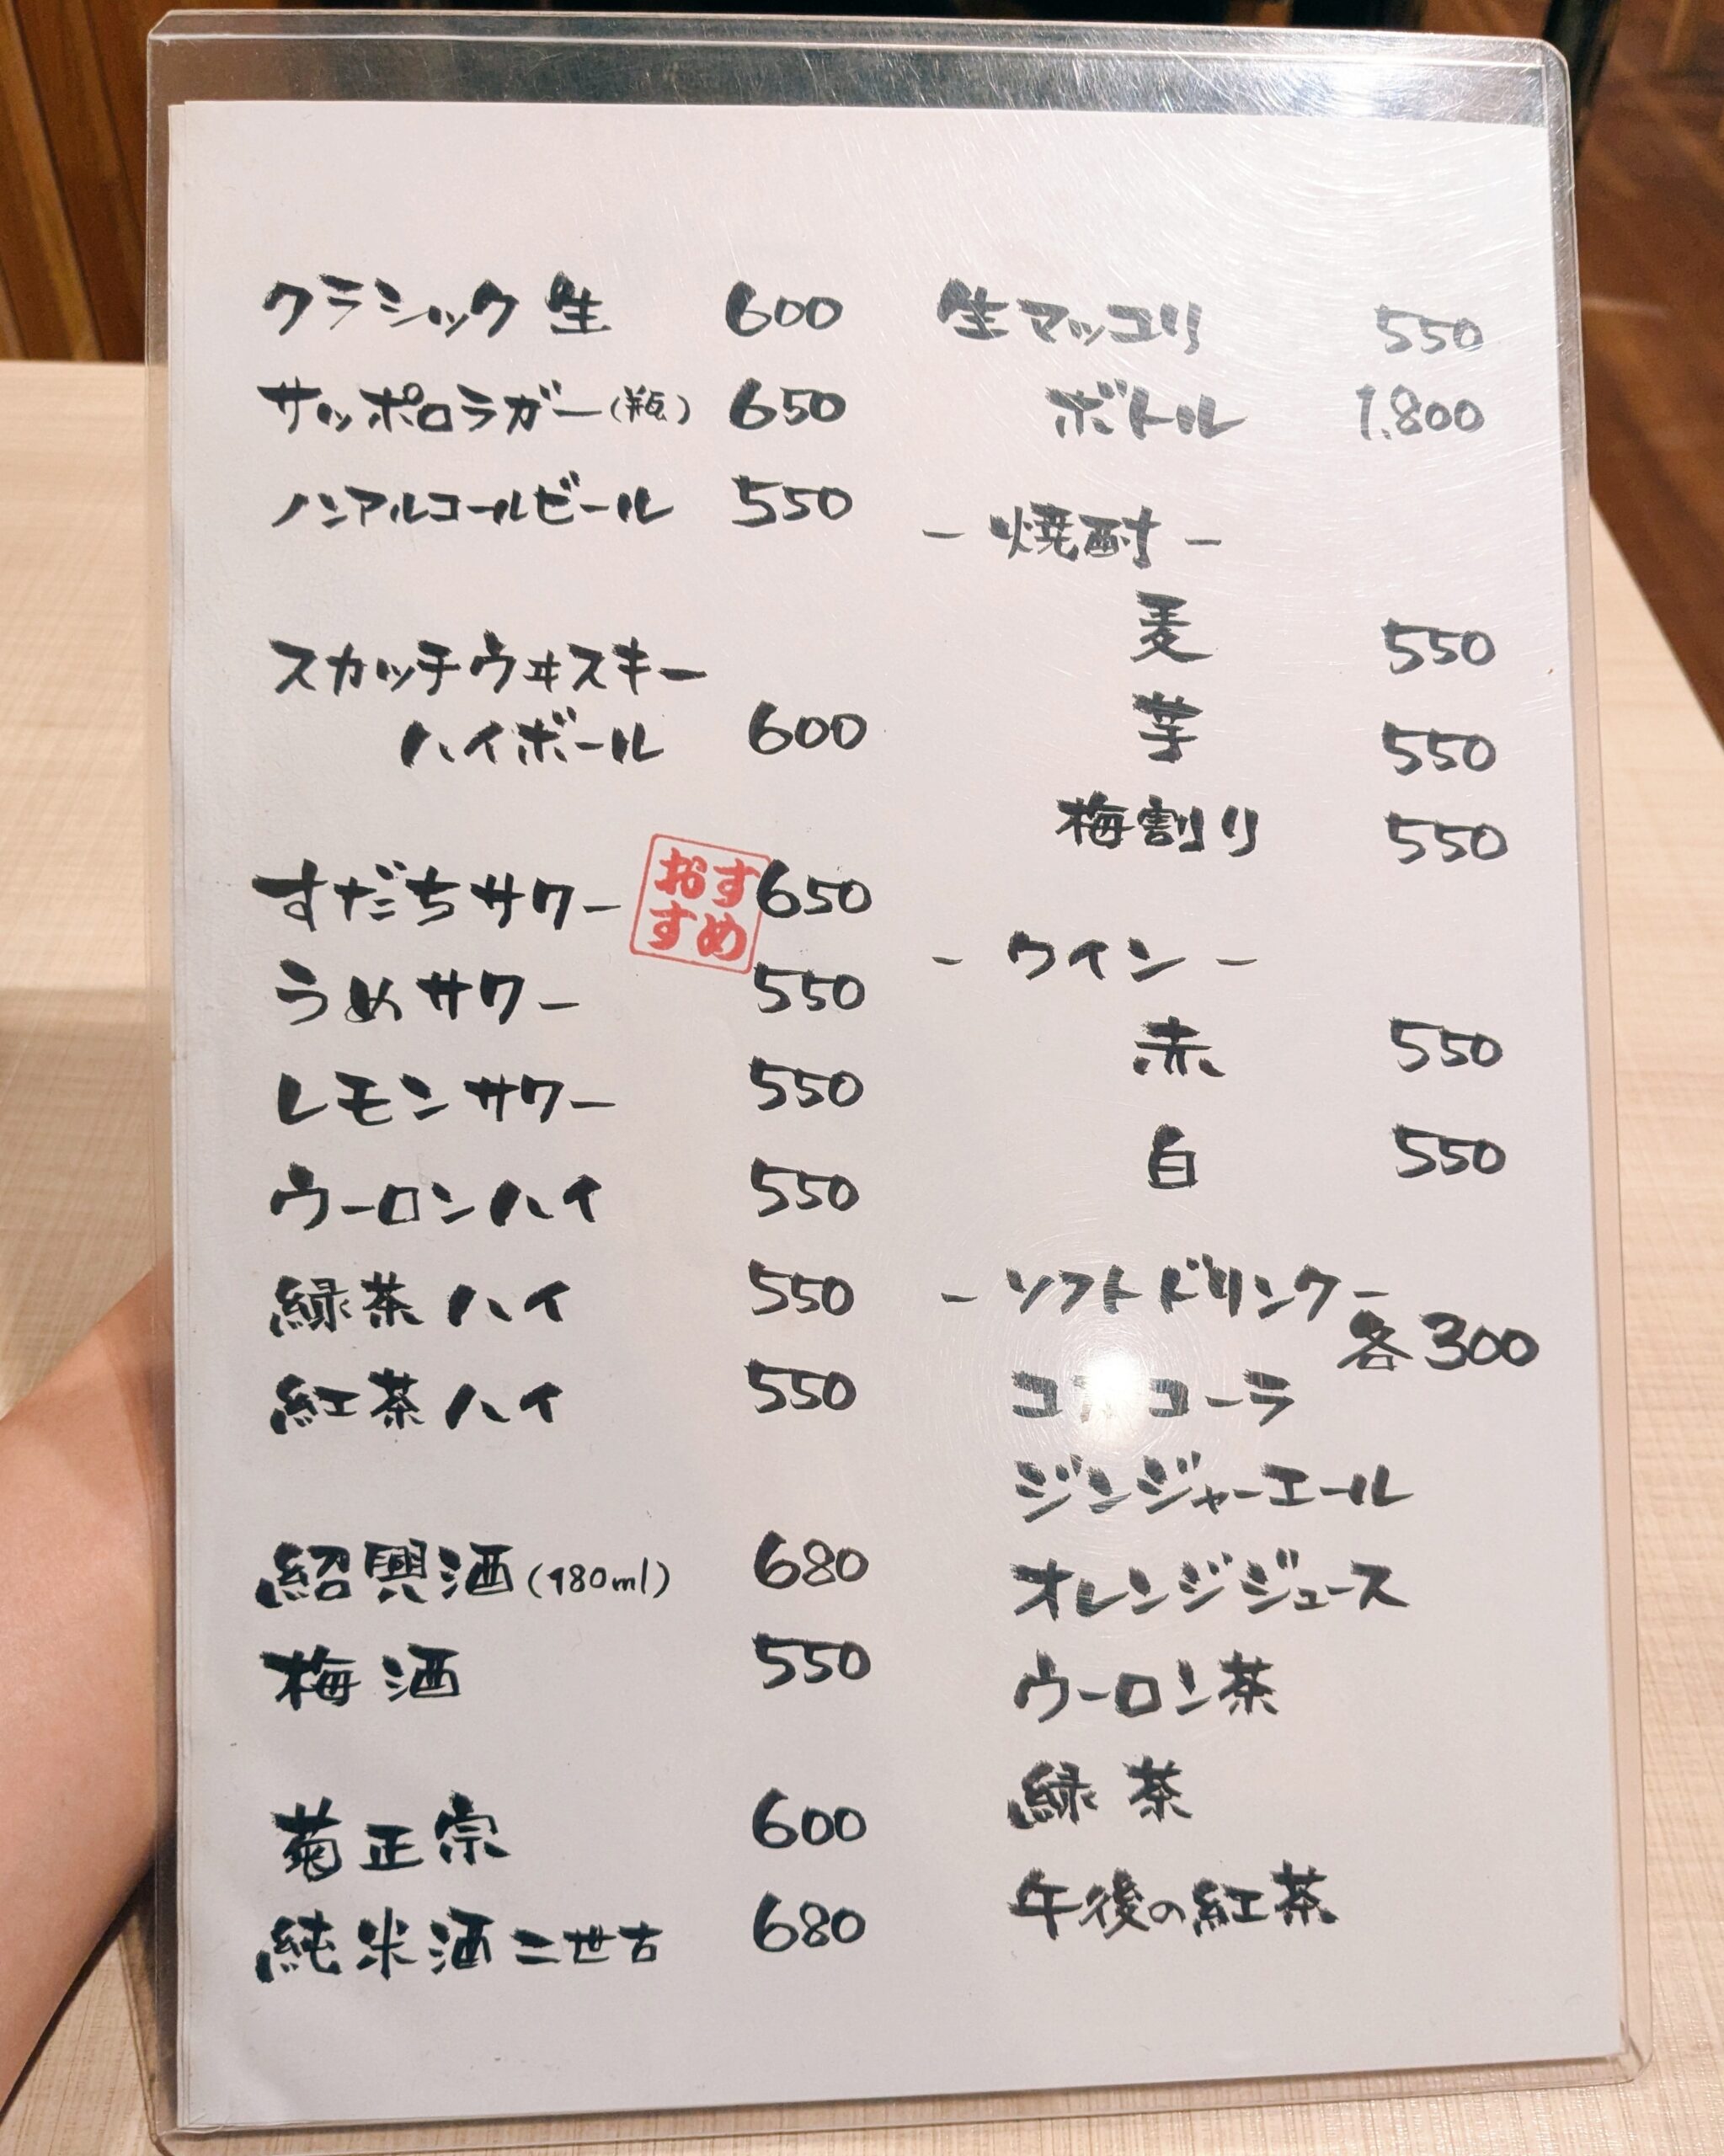 クラシック生 600
サッポロラガー(瓶) 650
ノンアルコールビール 550
スカッチウヰスキー
ハイボール 600
すだちサワー おすすめ 650
うめサワー 550
レモンサワー 550
ウーロンハイ 550
緑茶ハイ 550
紅茶ハイ 550
紹興酒(180ml) 680
梅酒 550
菊正宗 600
純米酒二世古 680
生マッコリ 550
ボトル 1.800
-焼酎-
麦 550
芋 550
梅割り 550
-ウイン-
赤 550
白 550
-ソフトドリンク-
各300
コカコーラ
ジンジャーエール
オレンジジュース
ウーロン茶
緑茶
午後の紅茶